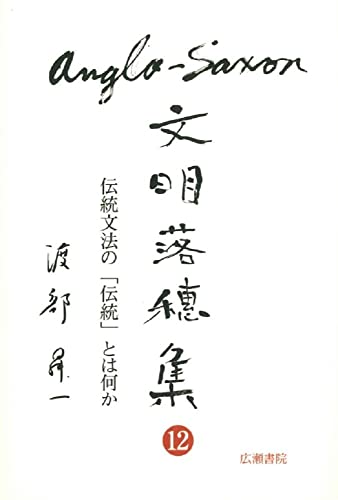 Anglo-Saxon
文明落穗集
伝統文法の「伝統」とは何か
渡部昇一
12
広瀬書院